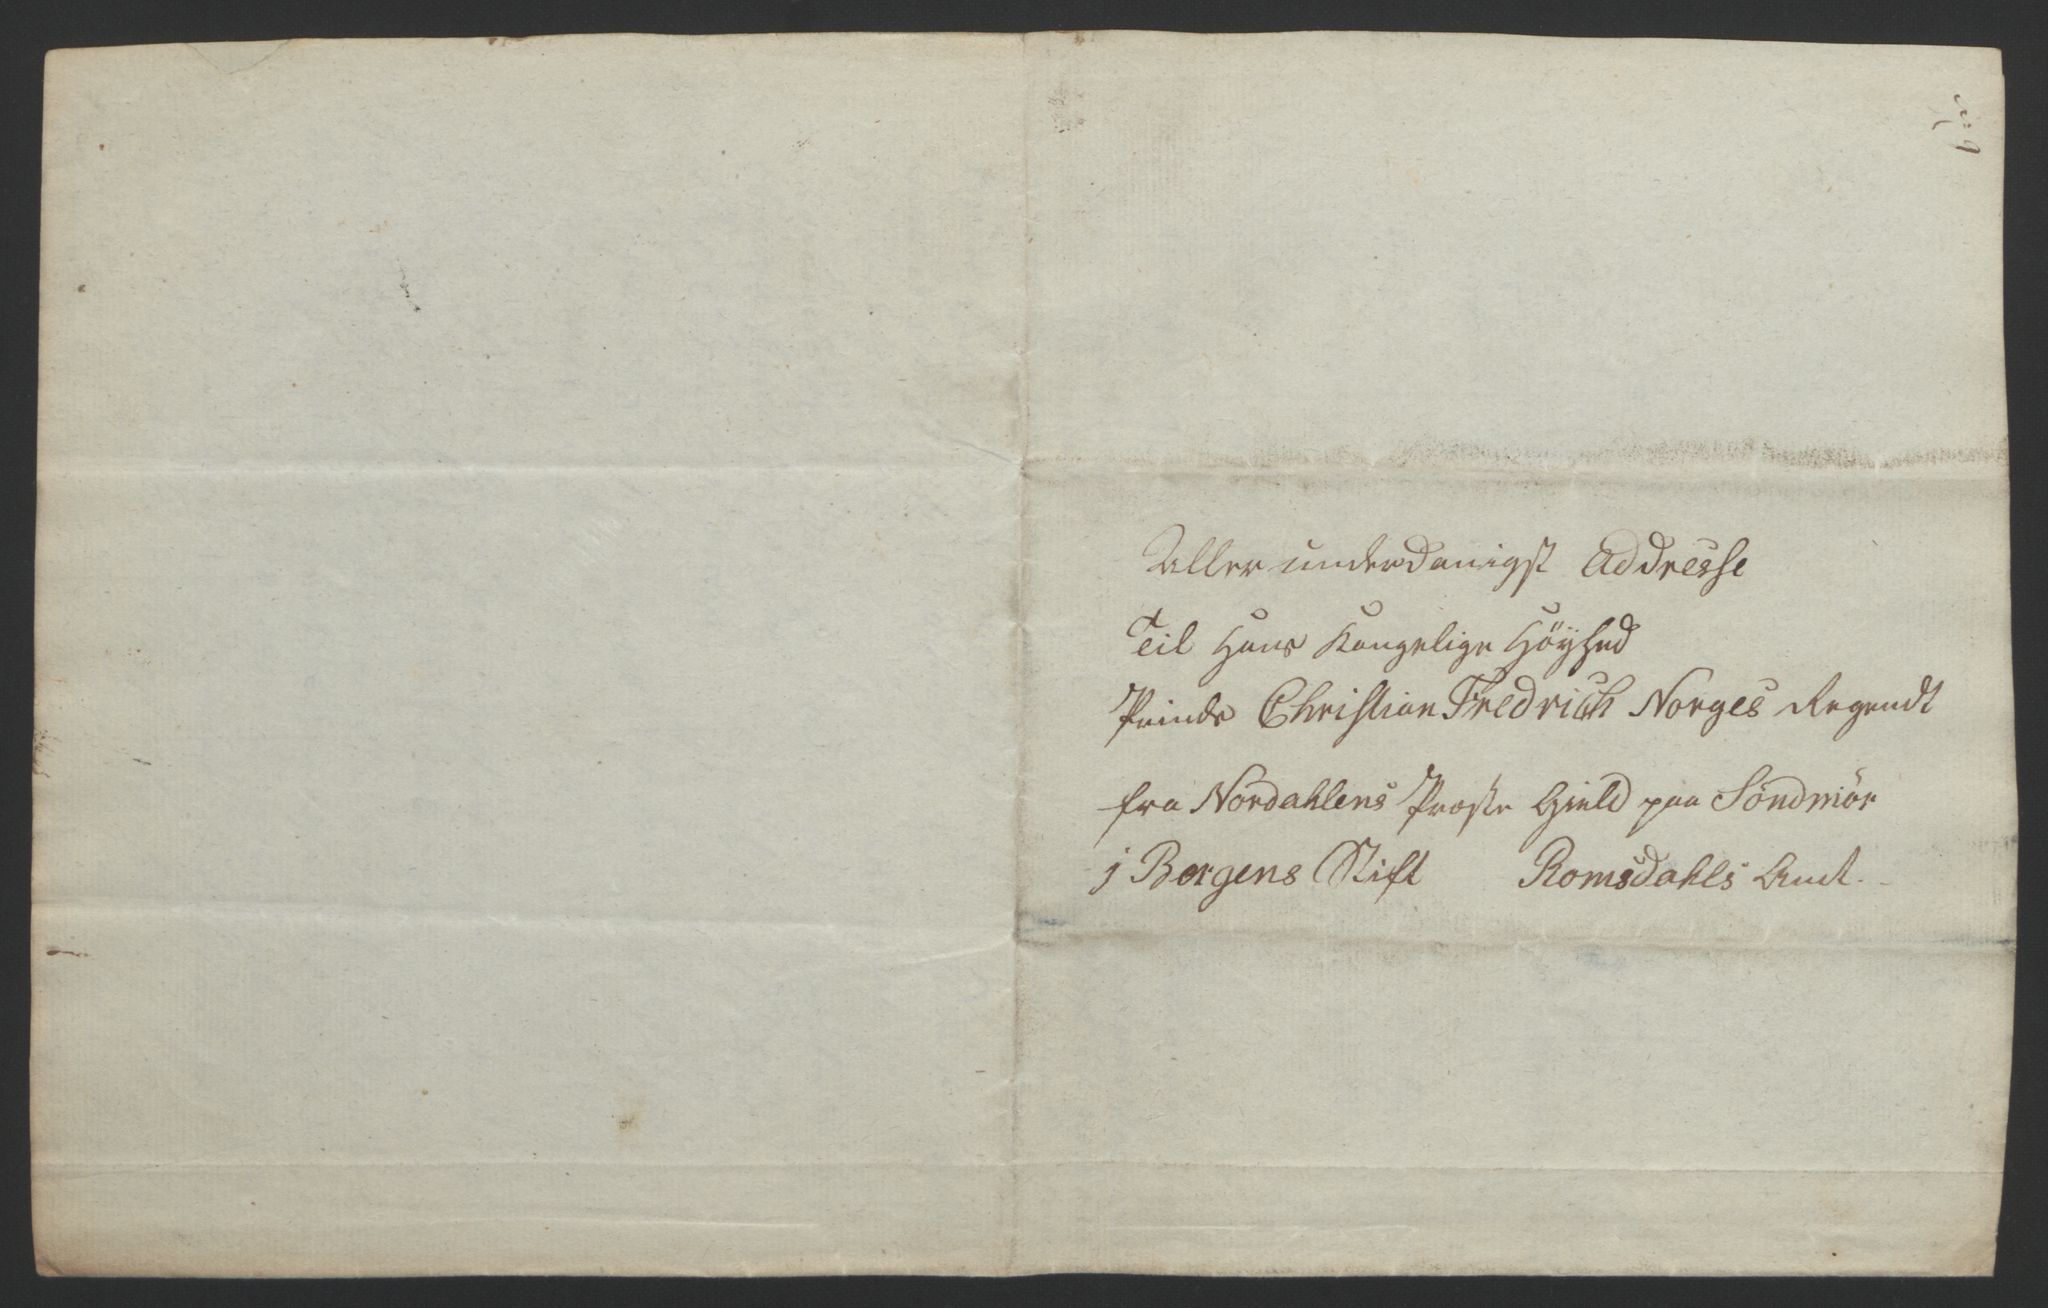 Aller underdanigst Addresse
Teil Hans Kongelige Höyhed
Prinds Christian Fredrich Norges Regendt
fra Nordahlens Præste Gield paa Söndmör
i Bergens Stift Romsdahls Amt.